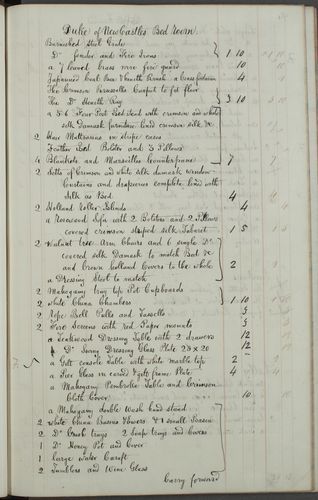 Duke of NewCastles Bed Room.
Burnished Steel Grate
Do fender and Fire Irons 1 10
a 7 leaved brass wire fire guard 10
Japanned Coal Box & hearth Brush a Cross 4
The Crimson Brusselles Carpet to fit floor
Fur Do Hearth Rug 3 10
a 5 6 Four Post Bedstead with crimson and white
silk Damask furniture lined crimson silk &c
2 Hair Mattrasses in stripe cases
Feather Bed Bolster and 3 Pillows
4 Blankets and Marseilles Counterpane 7
2 Setts of Crimson and white silk damask window
Curtains and draperies complete lined with
Silk as Bed 4
2 Holland Roller Blinds 4
a Rosewood Sofa with 2 Bolsters and 2 Pillows
covered crimson striped silk Tabaret 1 5
2 Walnut tree Arm Chairs and 6 single Do
covered silk Damask to match Bed &c
and brown holland Covers to the whole 2
a Dressing Stool to match
2 Mahogany tray top Pot Cupboards
2 white China Chambers 1 10
2 Rope Bell Pulls and Tassells 5
2 Fire Screens with red Paper mounts 5
a Teakwood Dressing Table with 2 drawers 12
a Do Swing Dressing Glass Plate 23 x 20 12
a Gilt console table with white marble top 2
a Pier Glass in carved & gilt frame Plate 4
a Mahogany Pembroke Table and Crimson
Cloth Cover 10
a Mahogany double Wash hand stand
2 white China Basins Ewers & 1 small Basin
2 Do Brush trays 2 Soap trays and Covers
1 Do Honey Pot and Cover
1 large water Caraft
2 Tumblers and Wine Glass
Carry forward